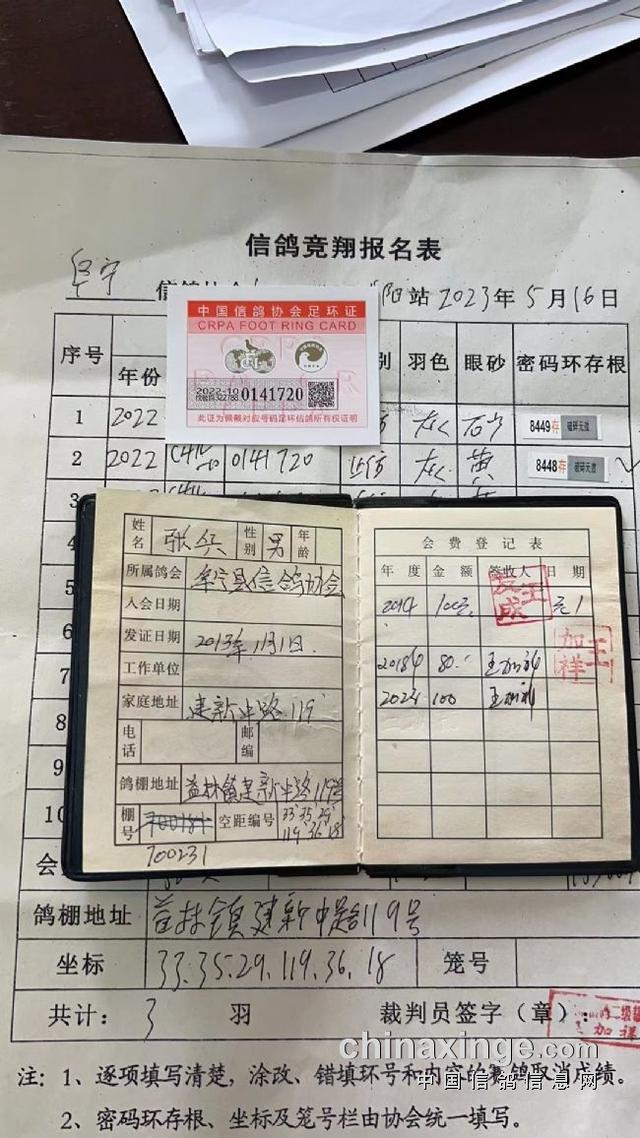 信鸽竞翔报名表
阜宁
阳站 2023年5月16日
中国信鸽协会足环证
CRPA FOOT RING CARD
2022-10
0141720
此证为佩戴对应号码足环信鸽所有权证明
序号 年份 别 羽色 眼砂 密码环存根
1 2022 灰 8449存 破碎无效
2 2022 0141720 灰 黄 8448存 破碎无效
3
4
5
6
7
8
9
10
姓名 张兵 性别 男 年龄
所属鸽会 阜宁县信鸽协会
入会日期
发证日期 2013年1月1日
工作单位
家庭地址 建新中路119
电话 邮编
鸽棚地址 益林镇建新中路119号
棚号 700184 空距编号 33.35.29 119.36.18
700231
会费登记表
年度 金额 签收人 日期
2014 100元 王成 元1
2018年 80.
2023 100
王加祥
会
鸽棚地址 益林镇建新中路119号
坐标 33.35.29.119.36.18 笼号
共计: 3 羽 裁判员签字(章):
加祥
注: 1、逐项填写清楚,涂改、错填环号和内容的赛鸽取消成绩。
2、密码环存根、坐标及笼号栏由协会统一填写。
chinaxinge.com
中国信鸽信息网